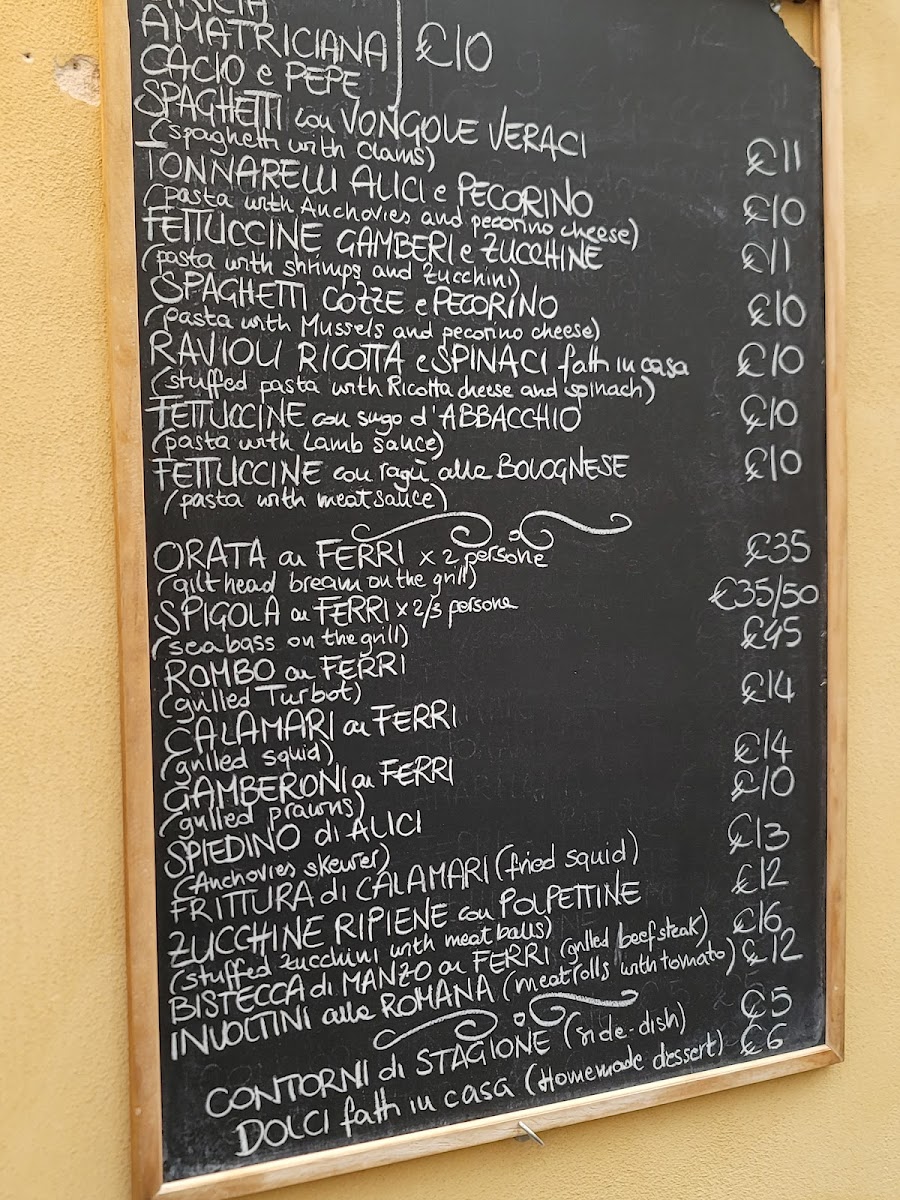 AMATRICIANA €10
CACIO e PEPE
SPAGHETTI con VONGOLE VERACI €11
(spaghetti with Clams)
TONNARELLI ALICI e PECORINO €10
(pasta with Anchovies and pecorino cheese)
FETTUCCINE GAMBERI e ZUCCHINE €11
(pasta with shrimps and Zucchini)
SPAGHETTI COZZE e PECORINO €10
(pasta with Mussels and pecorino cheese)
RAVIOLI RICOTTA e SPINACI fatti in casa €10
(stuffed pasta with Ricotta cheese and spinach)
FETTUCCINE con sugo d'ABBACCHIO €10
(pasta with Lamb sauce)
FETTUCCINE con ragù alla BOLOGNESE €10
(pasta with meat sauce)
ORATA ai FERRI x 2 persone €35
(gilt head bream on the grill)
SPIGOLA ai FERRI x 2/3 persone €35/50
(seabass on the grill)
ROMBO ai FERRI €45
(grilled Turbot)
CALAMARI ai FERRI €14
(grilled squid)
GAMBERONI ai FERRI €14
(grilled prawns)
SPIEDINO di ALICI €10
(Anchovies skewer)
FRITTURA di CALAMARI (fried squid) €13
ZUCCHINE RIPIENE con POLPETTINE €12
(stuffed zucchini with meat balls)
BISTECCA di MANZO ai FERRI (grilled beef steak) €16
INVOLTINI alla ROMANA (meat rolls with tomato) €12
CONTORNI di STAGIONE (side-dish) €5
DOLCI fatti in casa (Homemade dessert) €6